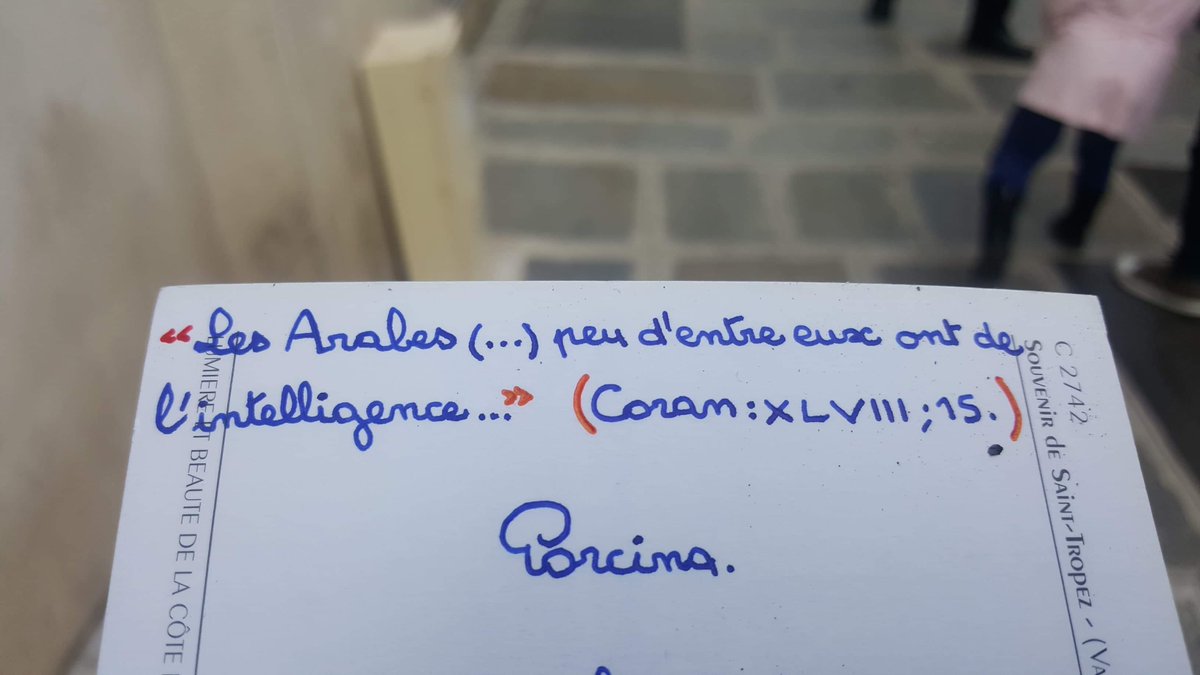 “Les Arabes (...) peu d'entre eux ont de
l'intelligence...” (Coran : XLVIII ; 15.)
Porcina.
LUMIERE ET BEAUTE DE LA CÔTE
C 2742
SOUVENIR DE SAINT-TROPEZ - (VA